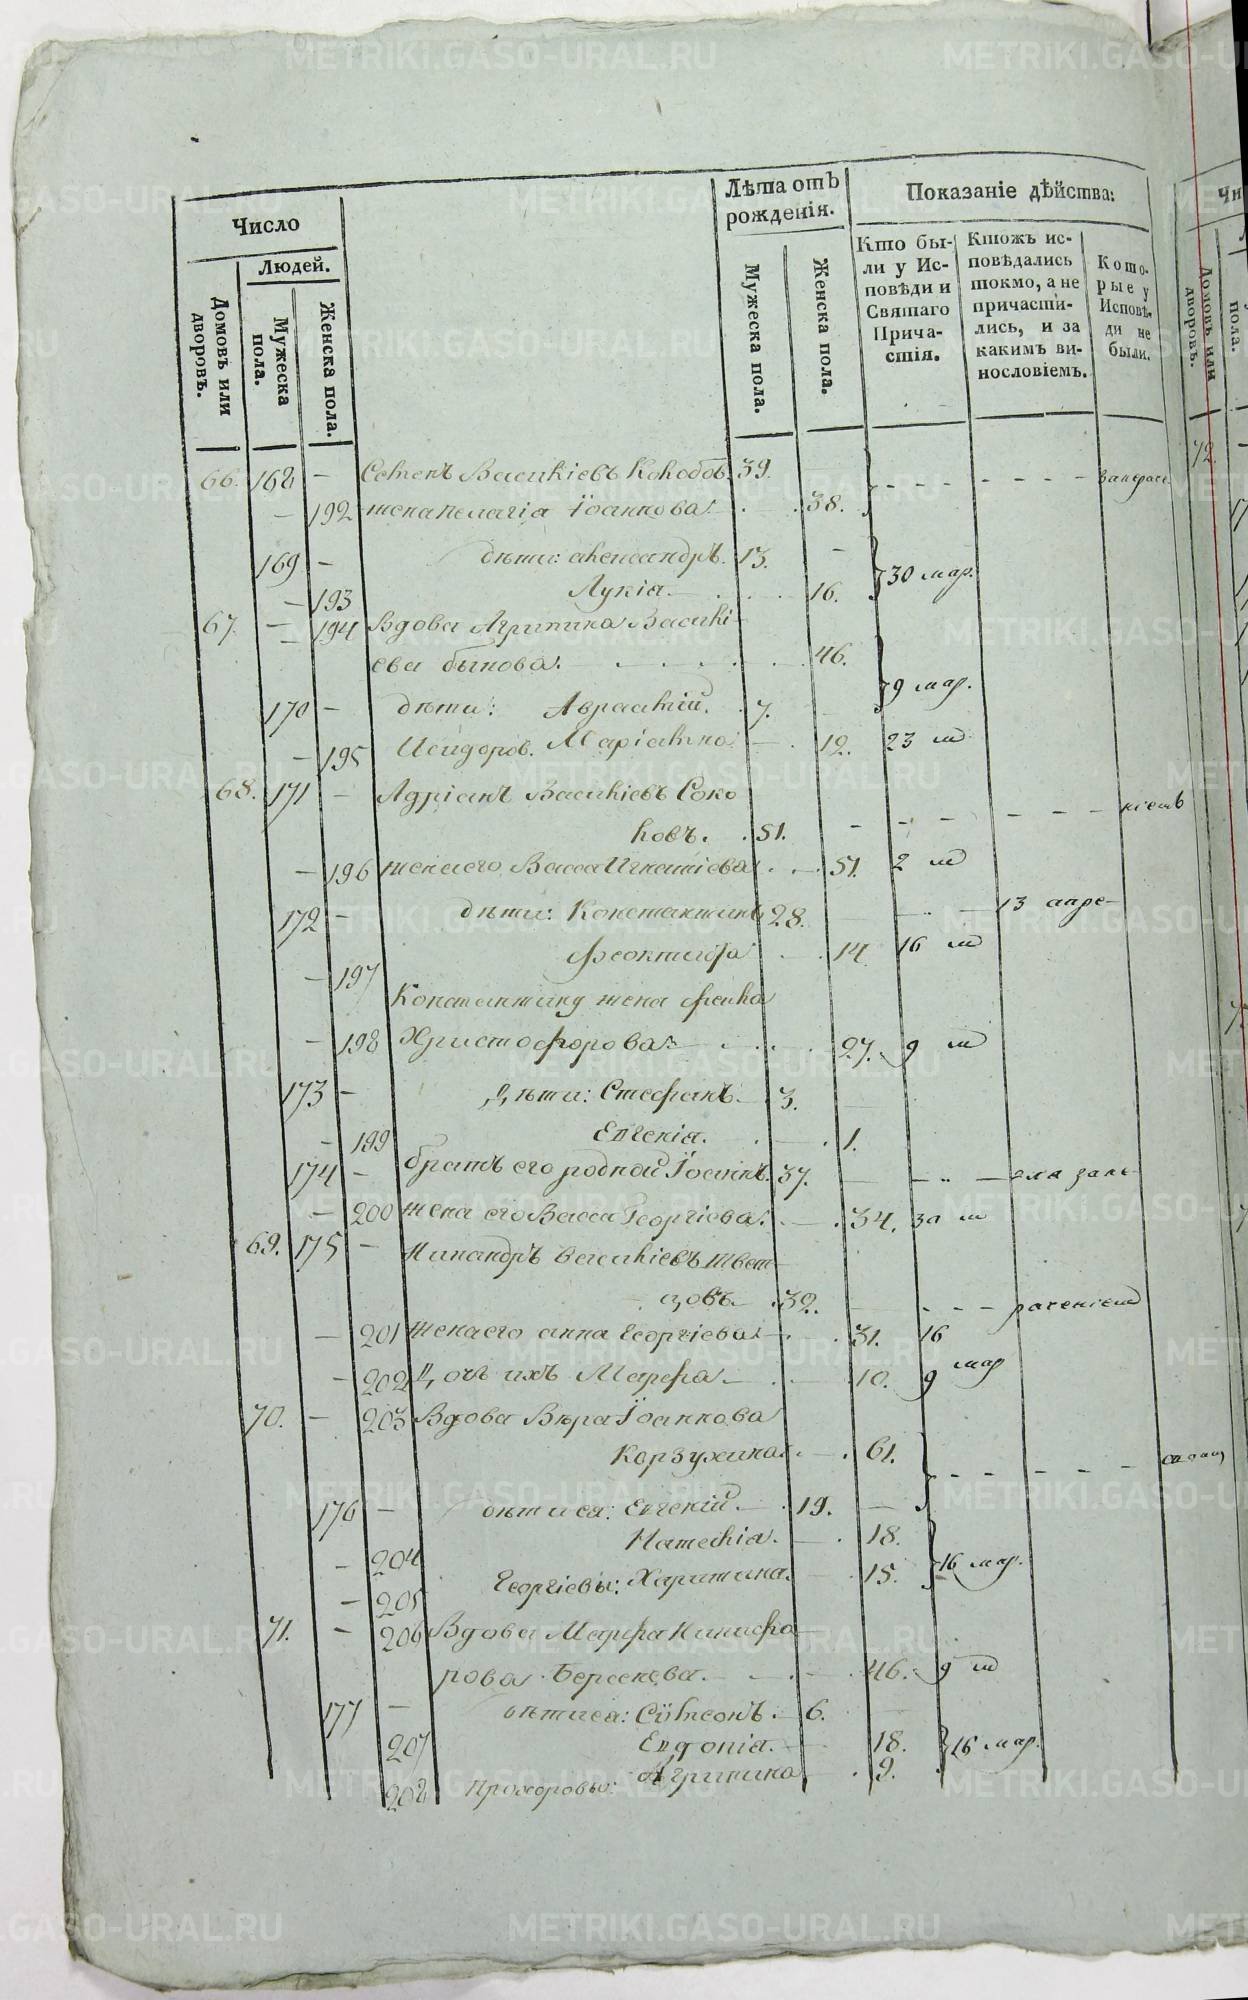 Число
Людей.
Домовъ или дворовъ.
Мужеска пола.
Женска пола.
Лѣта отъ рожденія.
Мужеска пола.
Женска пола.
Показаніе дѣйства:
Кто были у Исповѣди и Святаго Причастія.
Ктожъ исповѣдались токмо, а не причастились, и за какимъ винословіемъ.
Которые у Исповѣди не были.
66. 168 – Семенъ Васильевъ 39.
– 192 жена Пелагія Іоаннова 38.
169 – дѣти: александръ. 13. –
– 193 Лукія 16. 30 мар.
67. – 194 Вдова Агрипина Василі
ева быкова. 46.
170 – дѣти: Авраамій. 7. 9 мар.
– 195 Исидоров. Маріамна 12. 23 м
68. 171 – Адріанъ Васильевъ Соко
ловъ. 51. –
– 196 жена его Васса Игнатіева 51. 2 м
172 – дѣти: Константинъ 28. 13 апре-
– 197 феоктиста 14. 16 м
Константину жена фекла
– 198 Христофорова 27. 9 м
173 – Дѣти: Стефанъ. 3.
– 199 Евгенія. 1.
174 – братъ его родной Іоаннъ. 37.
– 200 жена его Васса Георгіева. 34. 30 м
69. 175 – Никандръ Васильевъ Швет
цовъ 32.
– 201 жена его анна Георгіева 31. 16
– 202 Дочь ихъ Марфа 10. 9 мар
70. – 203 Вдова Вѣра Іоаннова
Корзухина. 61.
176 – дѣти ея: Евгеній 19. –
– 204 Наталія. 18.
– 205 Георгіевы: Харитина. 15. 16 мар.
71. – 206 Вдова Марфа Никифо
рова Берсенева. 46. 9 м
177 – дѣти ея: Сѵмеонъ. 6.
207 Евдокія. 18. 16 мар.
208 Прохоровы: Агрипина 9.
72.
METRIKI.GASO-URAL.RU